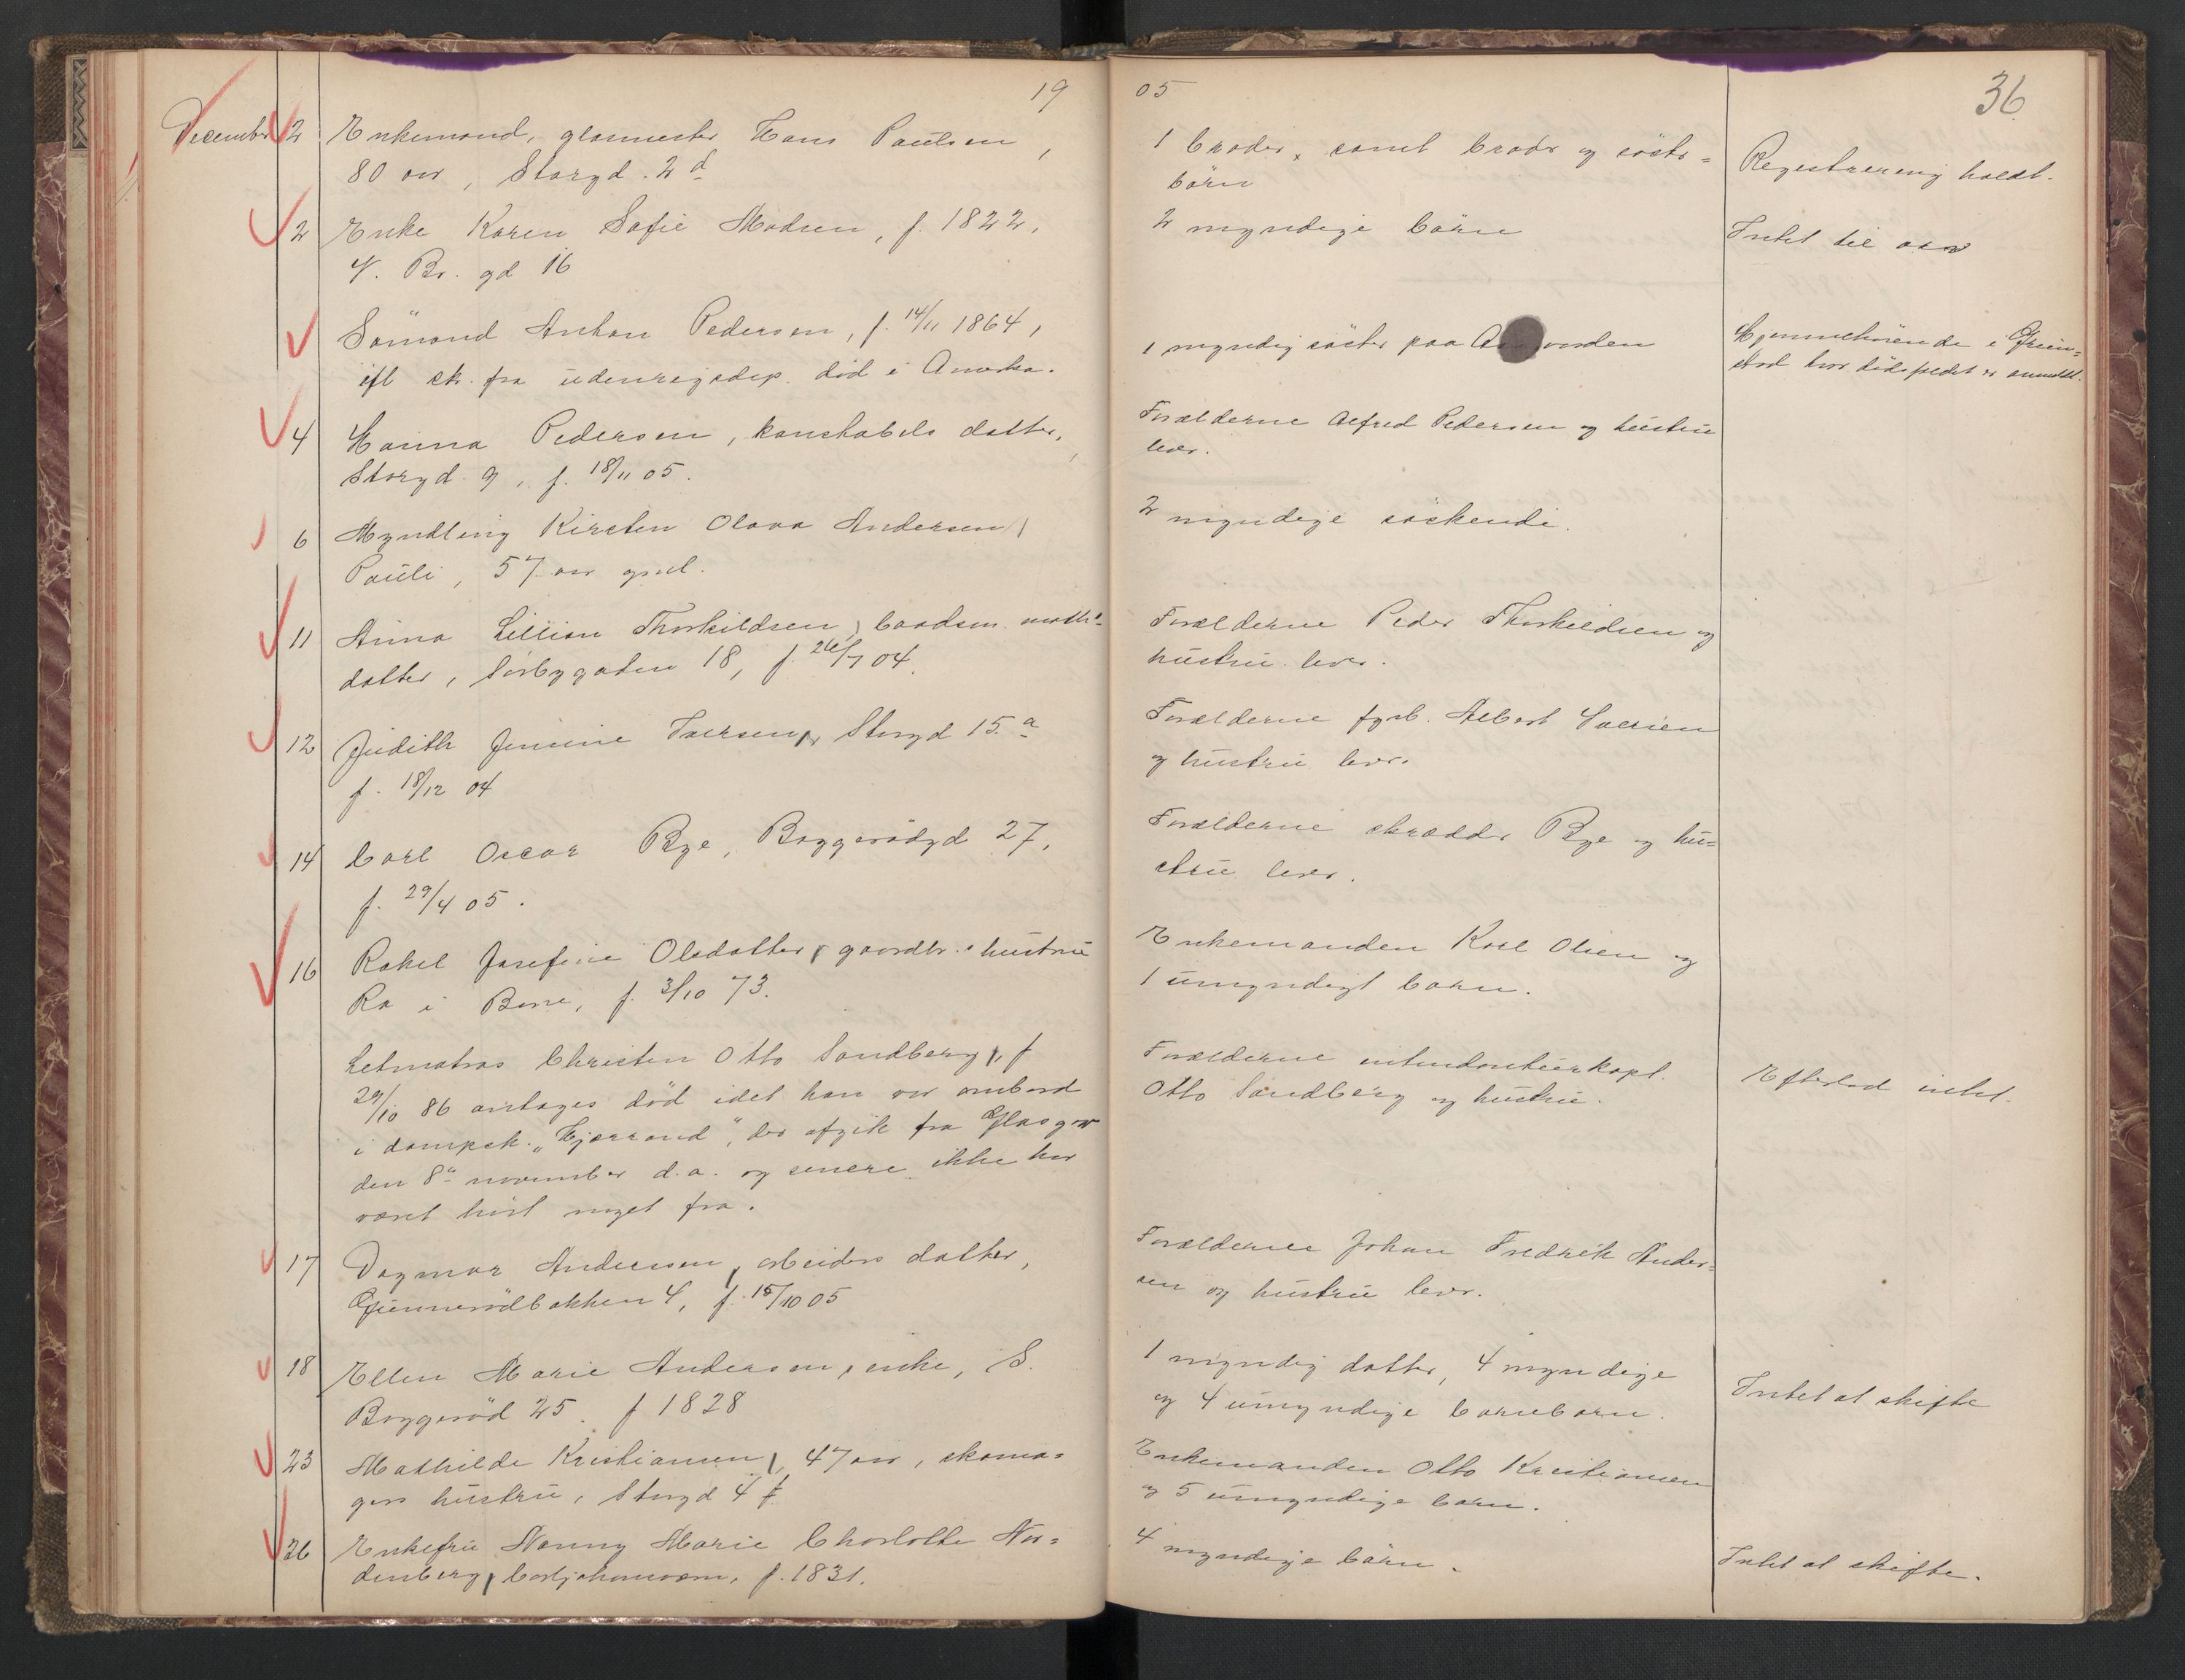 19 05
36
December 2 Enkemand, glasmester Hans Paulsen,
80 aar, Storgd. 2 d
1 broder, samt broder og söster=
börn
Registrering holdt.
2 Enke Karen Sofie Madsen, f. 1822,
V. Br. gd 16
2 myndige börn
Intet til arv
Sömand Anton Pedersen, f. 14/11 1864,
ifl sk. fra udenrigsdep. död i Amerika.
1 myndig söster paa
Hjemmehörende i Grim=
stad hvor dödsfaldet er anmeldt.
4 Hanna Pedersen, konstabels datter,
Storgd. 9, f. 18/11 05.
Forælderne Alfred Pedersen og hustru
lever.
6 Myndling Kirsten Olava Andersen,
Pauli, 57 aar gml.
2 myndige söskende.
11 Anna Lillian Thorkildsen, baadsm. math.
datter, Sörbygaten 18, f. 26/7 04.
Forælderne Peder Thorkildsen og
hustru lever.
12 Judith Jensine Iversen, Storgd 15 a
f. 18/12 04
Forælderne fyrb. Albert Iversen
og hustru lever.
14 Carl Oscar Bye, Baggerödgd 27,
f. 29/4 05.
Forælderne skrædder Bye og hu=
stru lever.
16 Rakel Josefine Olsdatter, gaardbr. hustru
Ra i Borre, f. 3/10 73.
Enkemanden Karl Olsen og
1 umyndigt barn.
Letmatros Christen Otto Sandberg, f
29/10 86 antages död idet han var ombord
i dampsk. "Hjarrand", der afgik fra Glasgow
den 8de november d.a. og senere ikke har
været hört noget fra.
Forælderne intendanturkapt.
Otto Sandberg og hustru.
Efterlod intet.
17 Dagmar Andersen, arbeiders datter,
Gjennerödbakken 4, f. 15/10 05
Forælderne Johan Fredrik Ander=
sen og hustru lever.
18 Ellen Marie Andersen, enke, S.
Baggeröd 25. f 1828
1 myndig datter, 4 myndige
og 4 umyndige barnebarn.
Intet at skifte
23 Mathilde Kristiansen, 47 aar, skoma=
gers hustru, Storgd 4 f
Enkemanden Otto Kristiansen
og 5 umyndige barn.
26 Enkefru Nanny Marie Charlotte Nor=
denberg, Carljohansvern, f. 1831.
4 myndige börn.
Intet at skifte.